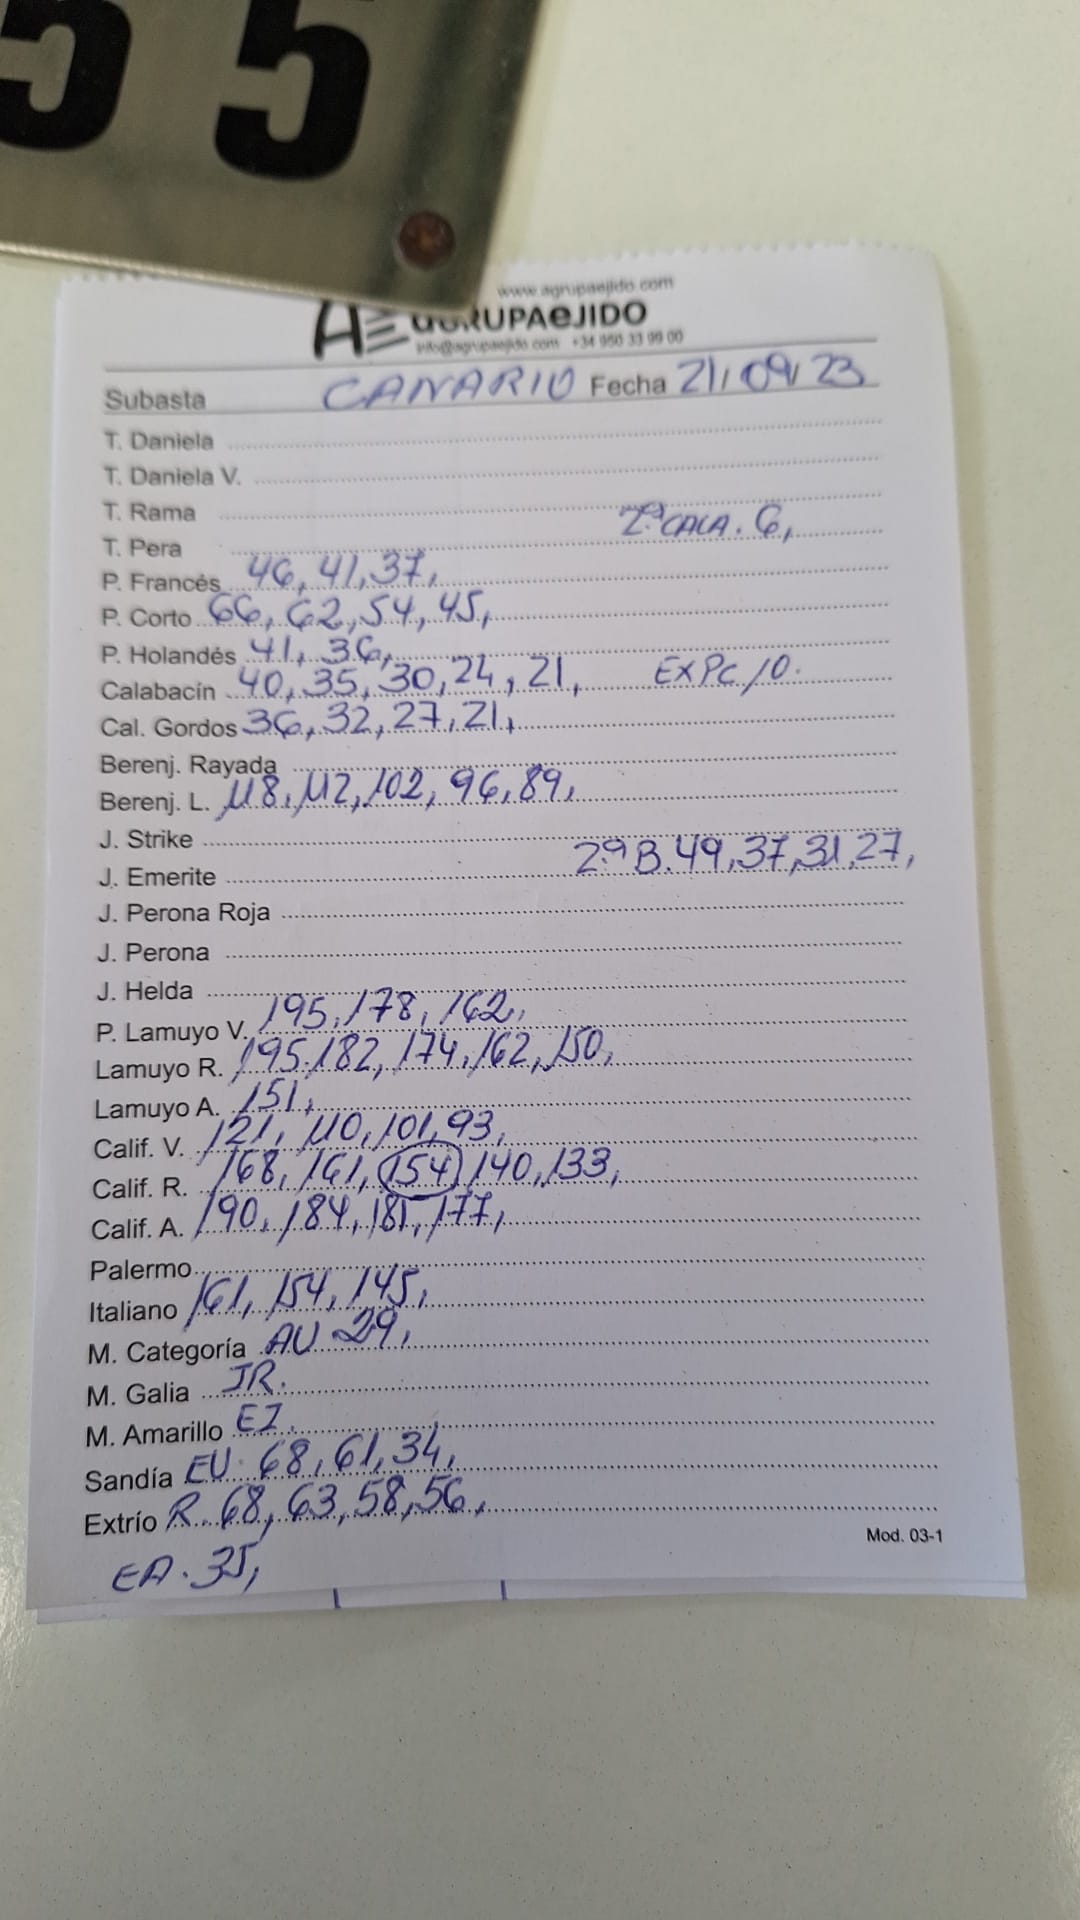 55
www.agrupaejido.com
AGRUPAEJIDO
info@agrupaejido.com +34 950 33 99 00
Subasta CANARIO Fecha 21/09/23
T. Daniela
T. Daniela V.
T. Rama
T. Pera 2ª CALA. 6,
P. Francés 46, 41, 37,
P. Corto 66, 62, 54, 45,
P. Holandés 41, 36,
Calabacín 40, 35, 30, 24, 21, EXPC 10.
Cal. Gordos 36, 32, 27, 21,
Berenj. Rayada
Berenj. L. 118, 112, 102, 96, 89,
J. Strike
J. Emerite 2ª B. 49, 37, 31, 27,
J. Perona Roja
J. Perona
J. Helda
P. Lamuyo V. 195, 178, 162,
Lamuyo R. 195. 182, 174, 162, 150,
Lamuyo A. 151,
Calif. V. 121, 110, 101, 93,
Calif. R. 168, 161, 154 140, 133,
Calif. A. 190, 184, 181, 177,
Palermo
Italiano 161, 154, 145,
M. Categoría AU 29,
M. Galia JR.
M. Amarillo EI.
Sandía EU. 68, 61, 34,
Extrío R. 68, 63, 58, 56,
Mod. 03-1
EA. 35,